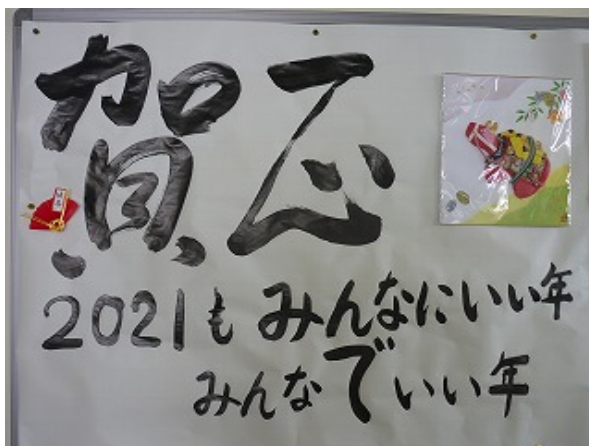 賀正
2021も みんなにいい年
みんなでいい年